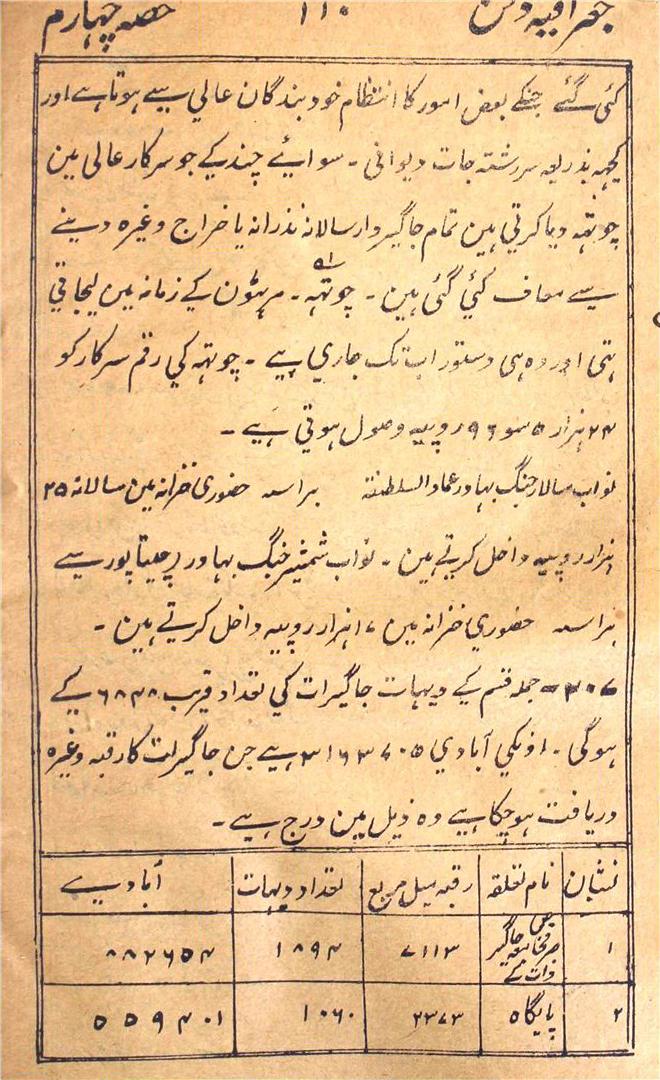 جغرافیہ دکن ۱۱۰ حصہ چہارم
کئی گئے جنکے بعض امور کا انتظام خود بندگان عالی سے ہوتا ہے اور
کچہہ بذریعہ سررشتہ جات دیوانی ۔ سوائے چند کے جو سرکار عالی مین
چوتہہ دیا کرتی ہین تمام جاگیردار سالانہ نذرانہ یا خراج وغیرہ دینے
سے معاف کئی گئی ہین ۔ چوتہہ ۔ مرہٹون کے زمانہ مین لیجاتی
تہی اور وہ ہی دستور ابتک جاری ہے ۔ چوتہہ کی رقم سرکار کو
۲۴ ہزار ۵ سو ۹۶ روپیہ وصول ہوتی ہے ۔
نواب سالار جنگ بہادر عماد السلطنتہ براسہ حضوری خزانہ مین سالانہ ۲۵
ہزار روپیہ داخل کرتے ہین ۔ نواب شمشیر جنگ بہادر سے
براسہ حضوری خزانہ مین ۱۷ ہزار روپیہ داخل کرتے ہین ۔
۳۰۷ ۔ جملہ قسم کے دیہات جاگیرات کی تعداد قریب ۶۸۴۸ کے
ہوگی ۔ اونکی آبادی ۳۱۶۳۷۰۵ ہے جن جاگیرات کا رقبہ وغیرہ
دریافت ہوچکا ہے وہ ذیل مین درج ہے ۔
نشان نام تعلقہ رقبہ میل مربع تعداد دیہات آبادی
۱ جاگیر ذات کے ۷۱۱۳ ۱۸۹۴ ۸۸۲۶۵۴
۲ پایگاہ ۲۳۷۳ ۱۰۶۰ ۵۵۹۴۰۱